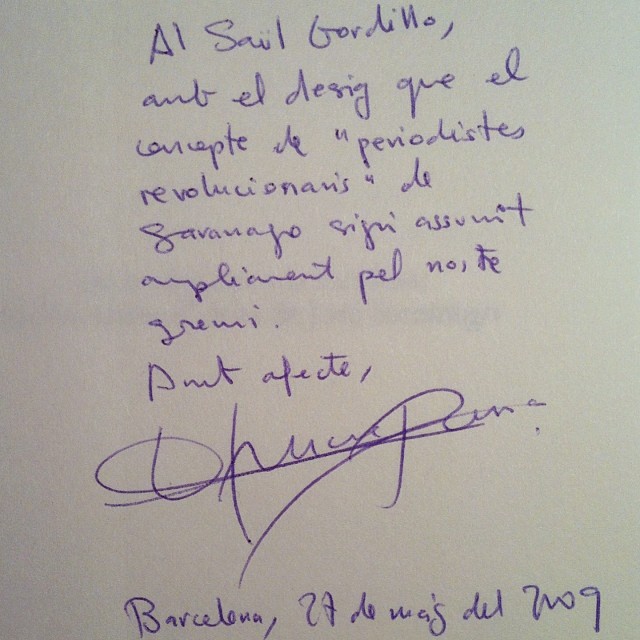 Al Saül Gordillo,
amb el desig que el
concepte de "periodistes
revolucionaris" de
sigui assumit
ampliament pel nostre
gremi.
Amb afecte,
Barcelona, 27 de maig del 2009